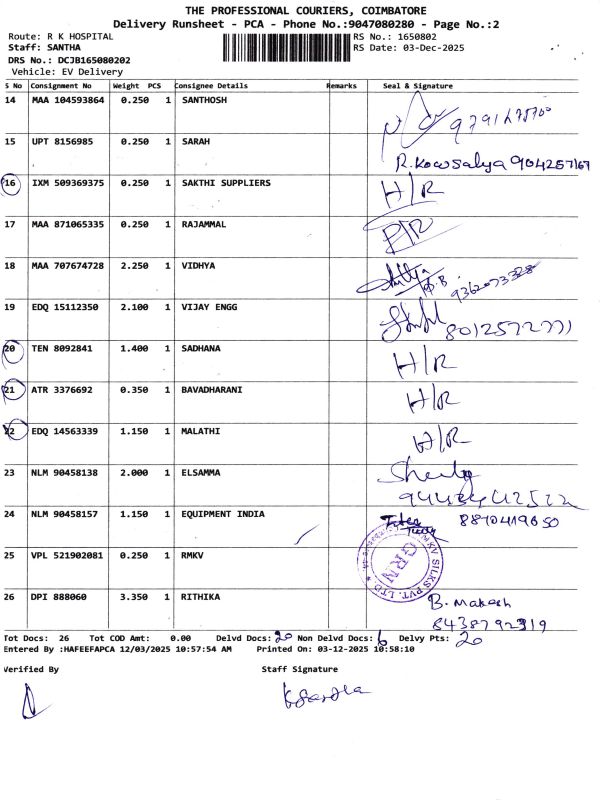 THE PROFESSIONAL COURIERS, COIMBATORE
Delivery Runsheet - PCA - Phone No.:9047080280 - Page No.:2
Route: R K HOSPITAL RS No.: 1650802
Staff: SANTHA RS Date: 03-Dec-2025
DRS No.: DCJB165080202
Vehicle: EV Delivery
S No Consignment No Weight PCS Consignee Details Remarks Seal & Signature
14 MAA 104593864 0.250 1 SANTHOSH
15 UPT 8156985 0.250 1 SARAH R. Kowsalya
16 IXM 509369375 0.250 1 SAKTHI SUPPLIERS H/R
17 MAA 871065335 0.250 1 RAJAMMAL
18 MAA 707674728 2.250 1 VIDHYA
19 EDQ 15112350 2.100 1 VIJAY ENGG
20 TEN 8092841 1.400 1 SADHANA H/R
21 ATR 3376692 0.350 1 BAVADHARANI H/R
22 EDQ 14563339 1.150 1 MALATHI H/R
23 NLM 90458138 2.000 1 ELSAMMA
24 NLM 90458157 1.150 1 EQUIPMENT INDIA
25 VPL 521902081 0.250 1 RMKV GRN
26 DPI 888060 3.350 1 RITHIKA B. Mahesh
8438792319
Tot Docs: 26 Tot COD Amt: 0.00 Delvd Docs: 20 Non Delvd Docs: 6 Delvy Pts: 20
Entered By :HAFEEFAPCA 12/03/2025 10:57:54 AM Printed On: 03-12-2025 10:58:10
Verified By Staff Signature